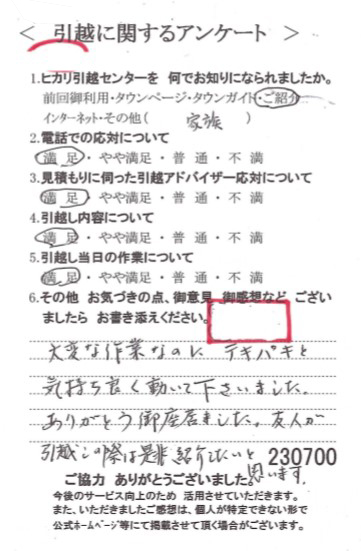 ＜ 引越に関するアンケート ＞
1.ヒカリ引越センターを 何でお知りになられましたか。
前回御利用・タウンページ・タウンガイド・ご紹介
インターネット・その他( 家族 )
2.電話での応対について
満 足・やや満足・普 通・不 満
3.見積もりに伺った引越アドバイザー応対について
満 足・やや満足・普 通・不 満
4.引越し内容について
満 足・やや満足・普 通・不 満
5.引越し当日の作業について
満 足・やや満足・普 通・不 満
6.その他 お気づきの点、御意見 御感想など ござい
ましたら お書き添えください。
大変な作業なのに テキパキと
気持ち良く動いて下さいました。
ありがとう御座居ました。友人が
引越しの際は是非紹介したいと 230700
思います。
ご協力 ありがとうございました。
今後のサービス向上のため 活用させていただきます。
また、いただきましたご感想は、個人が特定できない形で
公式ホームページ等にて掲載させて頂く場合がございます。